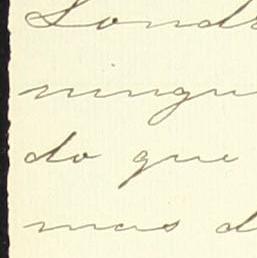 Londr
ningu
do que
mas d